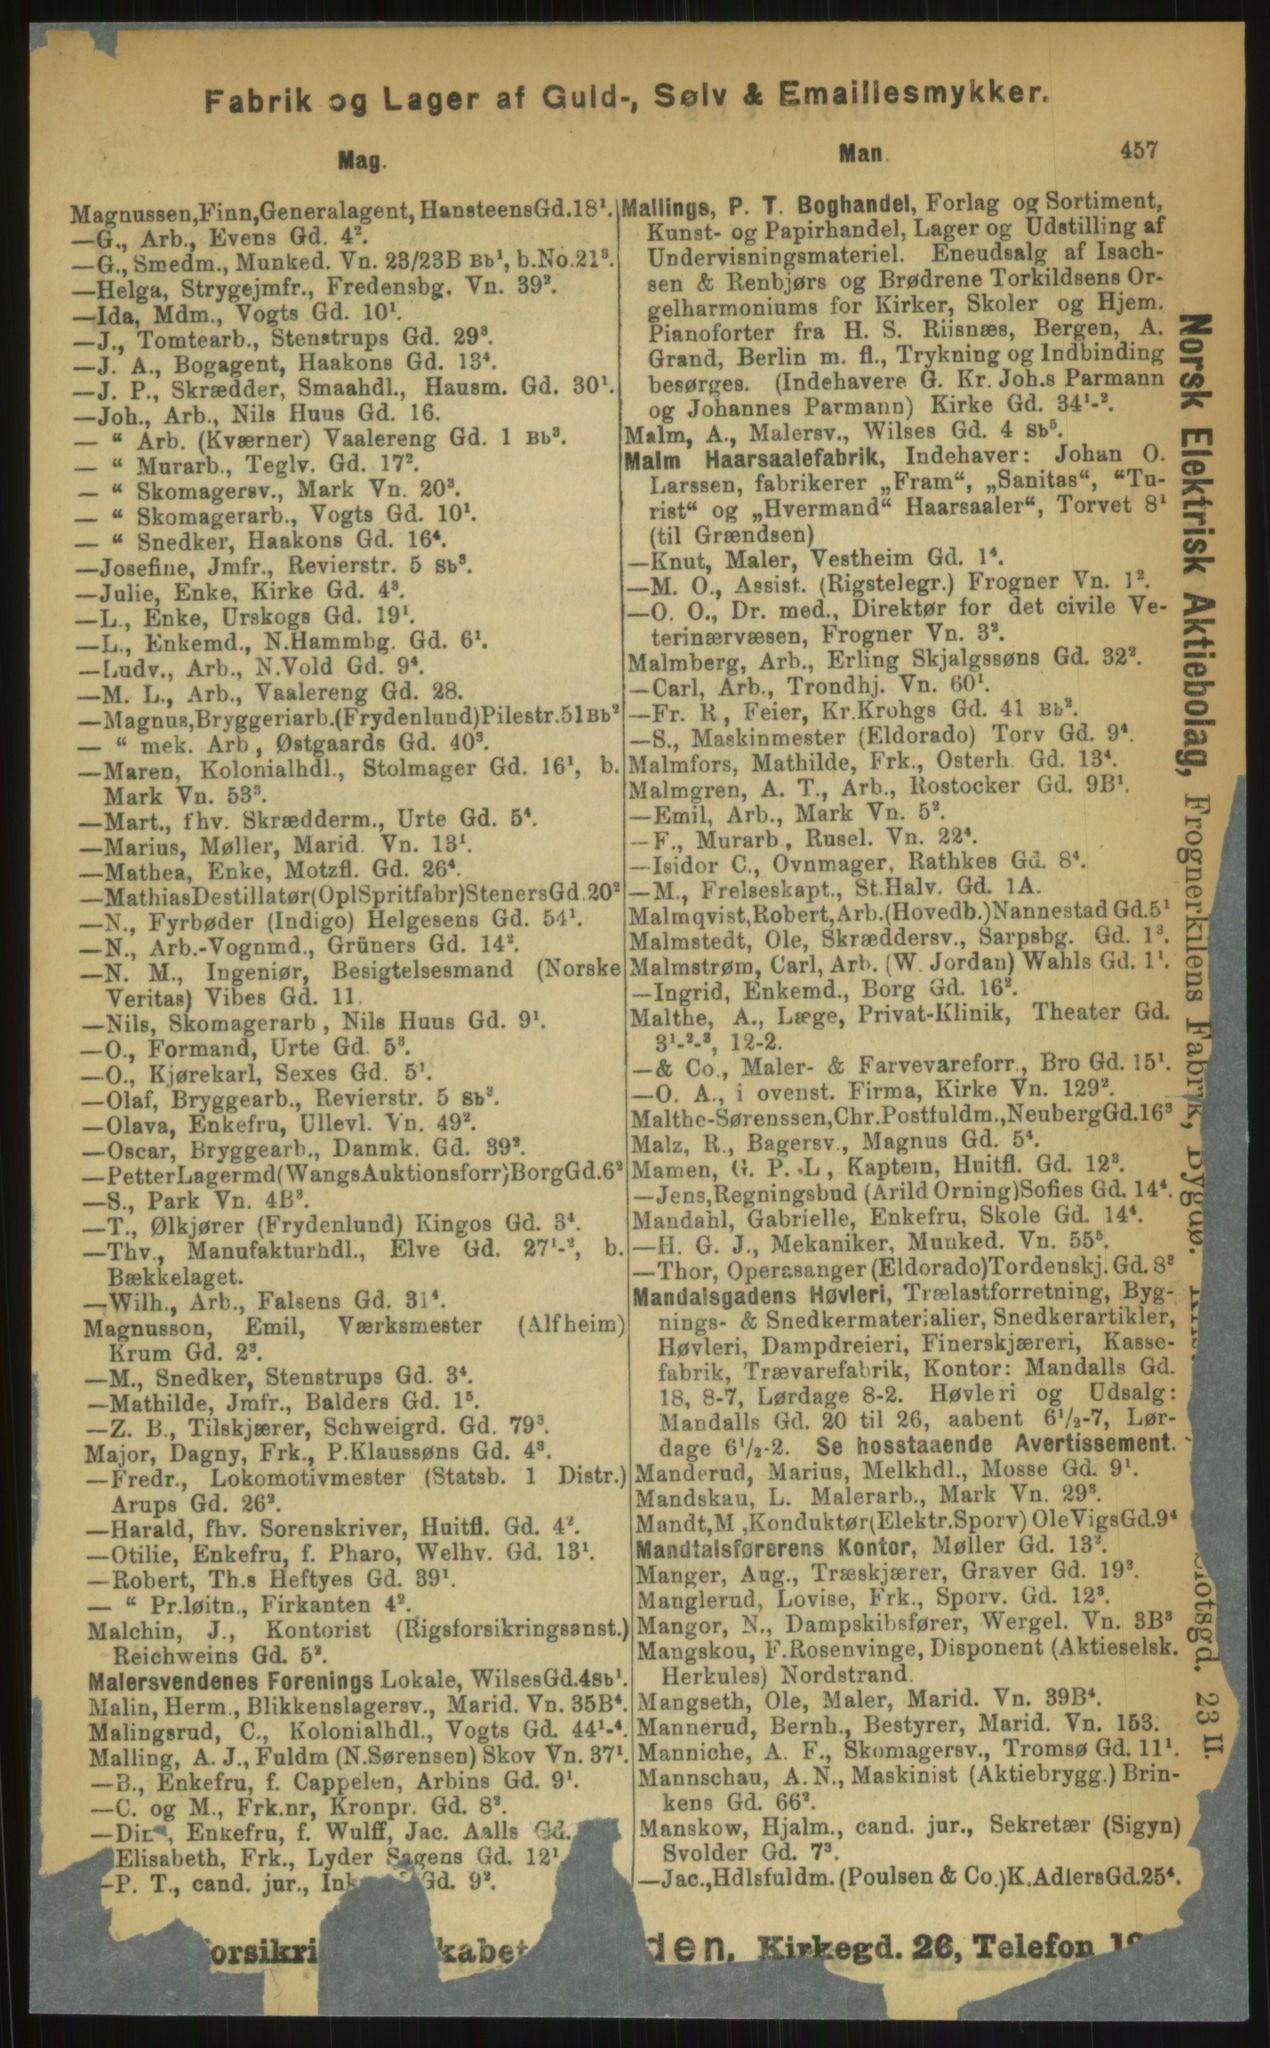 Fabrik og Lager af Guld-, Sølv & Emaillesmykker.
Mag.
Man.
457
Magnussen, Finn, Generalagent, Hansteens Gd. 18¹.
—G., Arb., Evens Gd. 4².
—G., Smedm., Munked. Vn. 23/23B Bb¹, b. No. 21³.
—Helga, Strygejmfr., Fredensbg. Vn. 39².
—Ida, Mdm., Vogts Gd. 10¹.
—J., Tomtearb., Stenstrups Gd. 29³.
—J. A., Bogagent, Haakons Gd. 13⁴.
—J. P., Skrædder, Smaahdl., Hausm. Gd. 30¹.
—Joh., Arb., Nils Huus Gd. 16.
— “ Arb. (Kværner) Vaalereng Gd. 1 Bb³.
— “ Murarb., Teglv. Gd. 17².
— “ Skomagersv., Mark Vn. 20³.
— “ Skomagerarb., Vogts Gd. 10¹.
— “ Snedker, Haakons Gd. 16⁴.
—Josefine, Jmfr., Revierstr. 5 Sb³.
—Julie, Enke, Kirke Gd. 4³.
—L., Enke, Urskogs Gd. 19¹.
—L., Enkemd., N. Hammbg. Gd. 6¹.
—Ludv., Arb., N. Vold Gd. 9⁴.
—M. L., Arb., Vaalereng Gd. 28.
—Magnus, Bryggeriarb. (Frydenlund) Pilestr. 51 Bb²
— “ mek. Arb., Østgaards Gd. 40³.
—Maren, Kolonialhdl., Stolmager Gd. 16¹, b.
Mark Vn. 53³.
—Mart., fhv. Skrædderm., Urte Gd. 5⁴.
—Marius, Møller, Marid. Vn. 13¹.
—Mathea, Enke, Motzfl. Gd. 26⁴.
—Mathias Destillatør (Opl Spritfabr) Steners Gd. 20²
—N., Fyrbøder (Indigo) Helgesens Gd. 54¹.
—N., Arb.-Vognmd., Grüners Gd. 14².
—N. M., Ingeniør, Besigtelsesmand (Norske
Veritas) Vibes Gd. 11.
—Nils, Skomagerarb., Nils Huus Gd. 9¹.
—O., Formand, Urte Gd. 5³.
—O., Kjørekarl, Sexes Gd. 5¹.
—Olaf, Bryggearb., Revierstr. 5 Sb³.
—Olava, Enkefru, Ullevl. Vn. 49².
—Oscar, Bryggearb., Danmk. Gd. 39².
—Petter Lagermd (Wangs Auktionsforr) Borg Gd. 6²
—S., Park Vn. 4B³.
—T., Ølkjører (Frydenlund) Kingos Gd. 3⁴.
—Thv., Manufakturhdl., Elve Gd. 27¹-², b.
Bækkelaget.
—Wilh., Arb., Falsens Gd. 31⁴.
Magnusson, Emil, Værksmester (Alfheim)
Krum Gd. 2³.
—M., Snedker, Stenstrups Gd. 3⁴.
—Mathilde, Jmfr., Balders Gd. 1⁵.
—Z. B., Tilskjærer, Schweigrd. Gd. 79³.
Major, Dagny, Frk., P. Klaussøns Gd. 4³.
—Fredr., Lokomotivmester (Statsb. 1 Distr.)
Arups Gd. 26².
—Harald, fhv. Sorenskriver, Huitfl. Gd. 4².
—Otilie, Enkefru, f. Pharo, Welhv. Gd. 13¹.
—Robert, Th.s Heftyes Gd. 39¹.
— “ Pr.løitn., Firkanten 4².
Malchin, J., Kontorist (Rigsforsikringsanst.)
Reichweins Gd. 5².
Malersvendenes Forenings Lokale, Wilses Gd. 4 Sb¹.
Malin, Herm., Blikkenslagersv., Marid. Vn. 35B⁴.
Malingsrud, C., Kolonialhdl., Vogts Gd. 44¹-⁴.
Malling, A. J., Fuldm (N. Sørensen) Skov Vn. 37¹.
—B., Enkefru, f. Cappelen, Arbins Gd. 9¹.
—C. og M., Frk.nr, Kronpr. Gd. 8².
—Enkefru, f. Wulff, Jac. Aalls Gd.
Elisabeth, Frk., Lyder Sagens Gd. 12¹
—P. T., cand. jur., Gd. 9².
Mallings, P. T. Boghandel, Forlag og Sortiment,
Kunst- og Papirhandel, Lager og Udstilling af
Undervisningsmateriel. Eneudsalg af Isach-
sen & Renbjørs og Brødrene Torkildsens Or-
gelharmoniums for Kirker, Skoler og Hjem.
Pianoforter fra H. S. Riisnæs, Bergen, A.
Grand, Berlin m. fl., Trykning og Indbinding
besørges. (Indehavere G. Kr. Joh.s Parmann
og Johannes Parmann) Kirke Gd. 34¹-².
Malm, A., Malersv., Wilses Gd. 4 Sb⁵.
Malm Haarsaalefabrik, Indehaver: Johan O.
Larssen, fabrikerer „Fram“, „Sanitas“, “Tu-
rist“ og „Hvermand“ Haarsaaler“, Torvet 8¹
(til Grændsen)
—Knut, Maler, Vestheim Gd. 1⁴.
—M. O., Assist. (Rigstelegr.) Frogner Vn. 1².
—O. O., Dr. med., Direktør for det civile Ve-
terinærvæsen, Frogner Vn. 3².
Malmberg, Arb., Erling Skjalgssøns Gd. 32².
—Carl, Arb., Trondhj. Vn. 60¹.
—Fr. R., Feier, Kr. Krohgs Gd. 41 Bb².
—S., Maskinmester (Eldorado) Torv Gd. 9⁴.
Malmfors, Mathilde, Frk., Osterh. Gd. 13⁴.
Malmgren, A. T., Arb., Rostocker Gd. 9B¹.
—Emil, Arb., Mark Vn. 5².
—F., Murarb., Rusel. Vn. 22⁴.
—Isidor C., Ovnmager, Rathkes Gd. 8⁴.
—M., Frelseskapt., St. Halv. Gd. 1A.
Malmqvist, Robert, Arb. (Hovedb.) Nannestad Gd. 5¹
Malmstedt, Ole, Skræddersv., Sarpsbg. Gd. 1³.
Malmstrøm, Carl, Arb. (W. Jordan) Wahls Gd. 1¹.
—Ingrid, Enkemd., Borg Gd. 16².
Malthe, A., Læge, Privat-Klinik, Theater Gd.
3¹-²-³, 12-2.
—& Co., Maler- & Farvevareforr., Bro Gd. 15¹.
—O. A., i ovenst. Firma, Kirke Vn. 129².
Malthe-Sørenssen, Chr. Postfuldm., Neuberg Gd. 16³
Malz, R., Bagersv., Magnus Gd. 5⁴.
Mamen, G. P. L., Kaptein, Huitfl. Gd. 12³.
—Jens, Regningsbud (Arild Orning) Sofies Gd. 14⁴.
Mandahl, Gabrielle, Enkefru, Skole Gd. 14⁴.
—H. G. J., Mekaniker, Munked. Vn. 55⁵.
—Thor, Operasanger (Eldorado) Tordenskj. Gd. 8³
Mandalsgadens Høvleri, Trælastforretning, Byg-
nings- & Snedkermaterialier, Snedkerartikler,
Høvleri, Dampdreieri, Finerskjæreri, Kasse-
fabrik, Trævarefabrik, Kontor: Mandalls Gd.
18, 8-7, Lørdage 8-2. Høvleri og Udsalg:
Mandalls Gd. 20 til 26, aabent 6½-7, Lør-
dage 6½-2. Se hosstaaende Avertissement.
Manderud, Marius, Melkhdl., Mosse Gd. 9¹.
Mandskau, L. Malerarb., Mark Vn. 29³.
Mandt, M., Konduktør (Elektr. Sporv) Ole Vigs Gd. 9⁴
Mandtalsførerens Kontor, Møller Gd. 13².
Manger, Aug., Træskjærer, Graver Gd. 19³.
Manglerud, Lovise, Frk., Sporv. Gd. 12³.
Mangor, N., Dampskibsfører, Wergel. Vn. 3B³
Mangskou, F. Rosenvinge, Disponent (Aktieselsk.
Herkules) Nordstrand.
Mangseth, Ole, Maler, Marid. Vn. 39B⁴.
Mannerud, Bernh., Bestyrer, Marid. Vn. 153.
Manniche, A. F., Skomagersv., Tromsø Gd. 11¹.
Mannschau, A. N., Maskinist (Aktiebrygg.) Brin-
kens Gd. 66².
Manskow, Hjalm., cand. jur., Sekretær (Sigyn)
Svolder Gd. 7³.
—Jac., Hdlsfuldm. (Poulsen & Co.) K. Adlers Gd. 25⁴.
Norsk Elektrisk Aktiebolag, Frognerkilens Fabrik, Bygdø. Slotsgd. 23 II.
Kirkegd. 26, Telefon